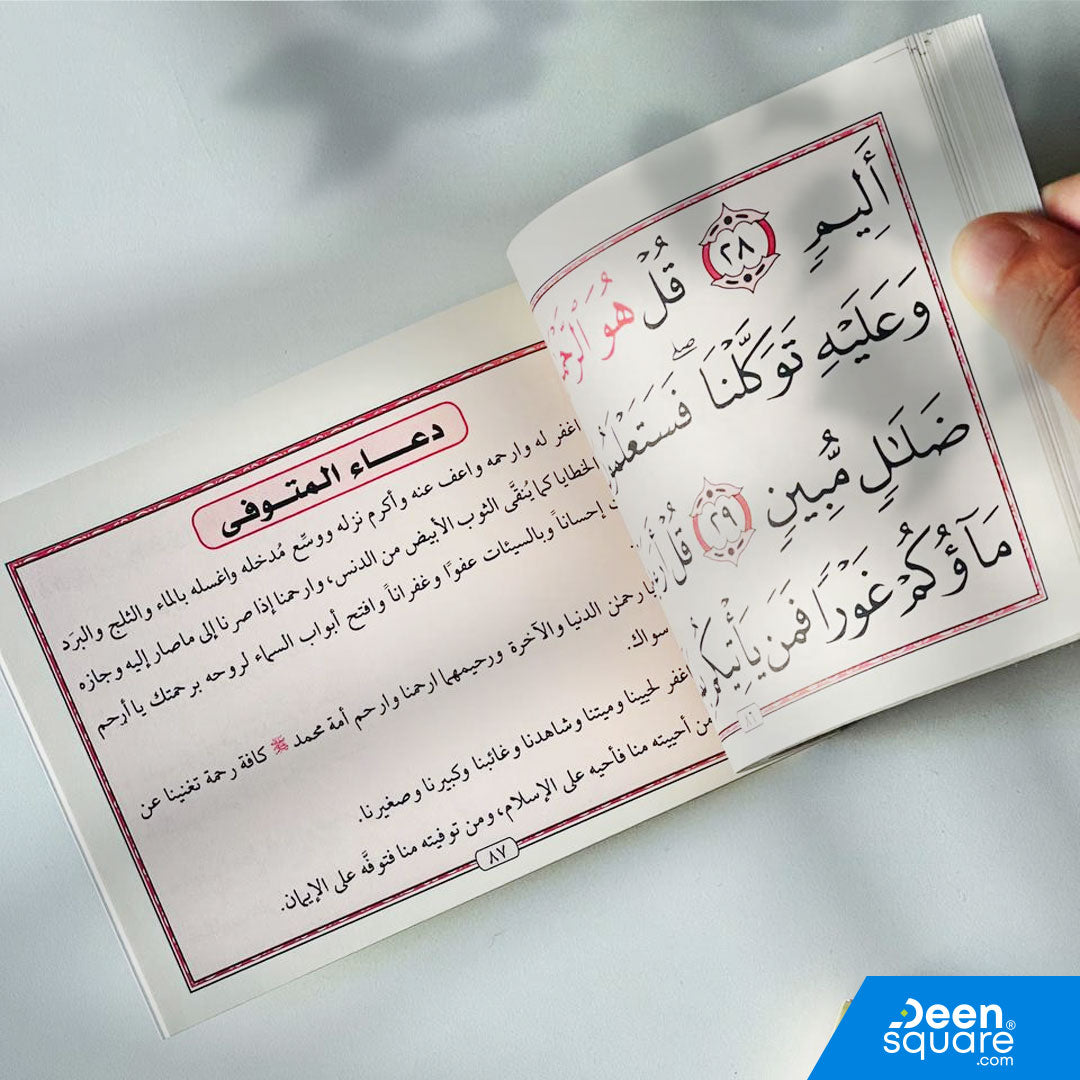 أَلِيمٍ ٢٨ قُلْ هُوَ ٱلرَّحْمَـ
وَعَلَيْهِ تَوَكَّلْنَا ۖ فَسَتَعْلَمُ
ضَلَـٰلٍ مُّبِينٍ ٢٩ قُلْ أَرَ
مَآؤُكُمْ غَوْرًا فَمَن يَأْتِيكُم
دعـــاء المتـوفى
اغفر له وارحمه واعف عنه وأكرم نزله ووسِّع مُدخله واغسله بالماء والثلج والبرَد
الخطايا كما يُنقَّى الثوب الأبيض من الدنس، وارحمنا إذا صرنا إلى ماصار إليه وجازه
إحساناً وبالسيئات عفوًا وغفراناً وافتح أبواب السماء لروحه برحمتك يا أرحم
يا رحمن الدنيا والآخرة ورحيمهما ارحمنا وارحم أمة محمد ﷺ كافة رحمة تغنينا عن
سواك.
غفر لحيينا وميتنا وشاهدنا وغائبنا وكبيرنا وصغيرنا.
من أحييته منا فأحيه على الإسلام، ومن توفيته منا فتوفَّه على الإيمان.
٨٧
Deen
square®
.com